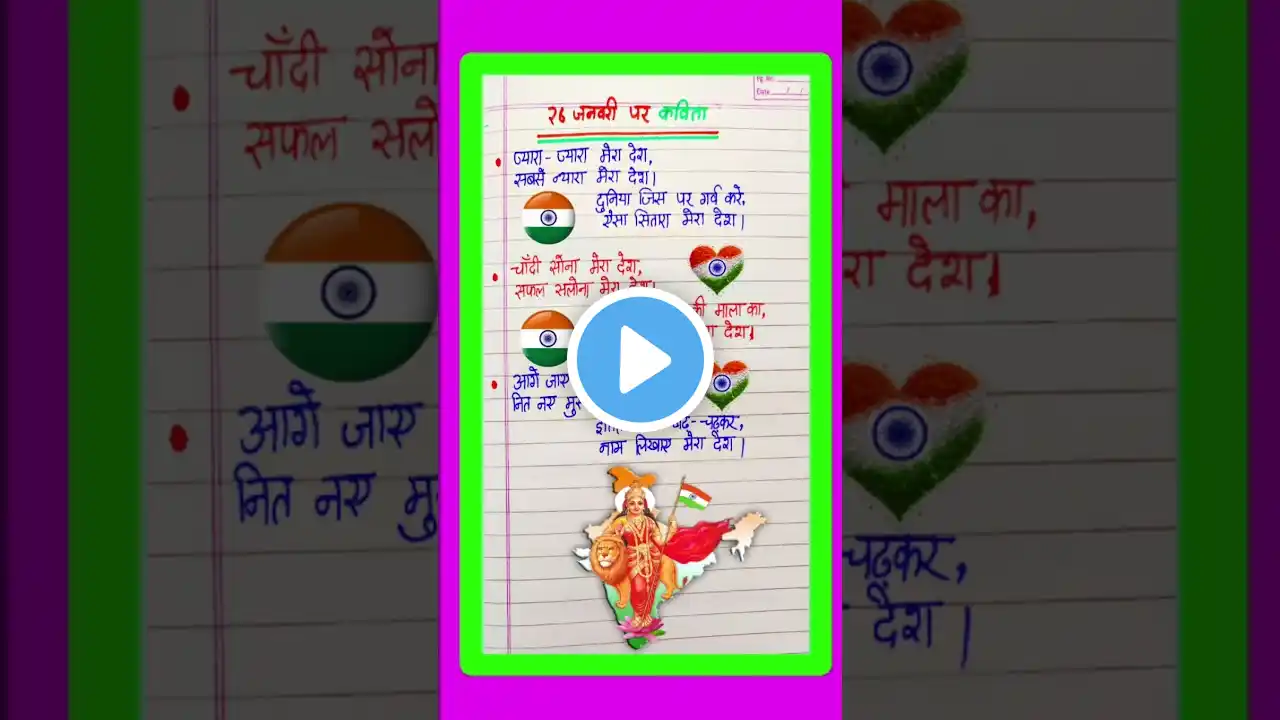 Date
२६ जनवरी पर कविता
प्यारा-प्यारा मेरा देश,
सबसे न्यारा मेरा देश।
दुनिया जिस पर गर्व करे,
ऐसा सितारा मेरा देश।
चाँदी सोना मेरा देश,
सफल सलोना मेरा देश।
की माला का,
देश।
आगे जाए
नित नए
चढ़कर,
नाम लिखाए मेरा देश।
चाँदी सोना
सफल
माला का,
देश।
आगे जाए
नित नए
चढ़कर,
देश।